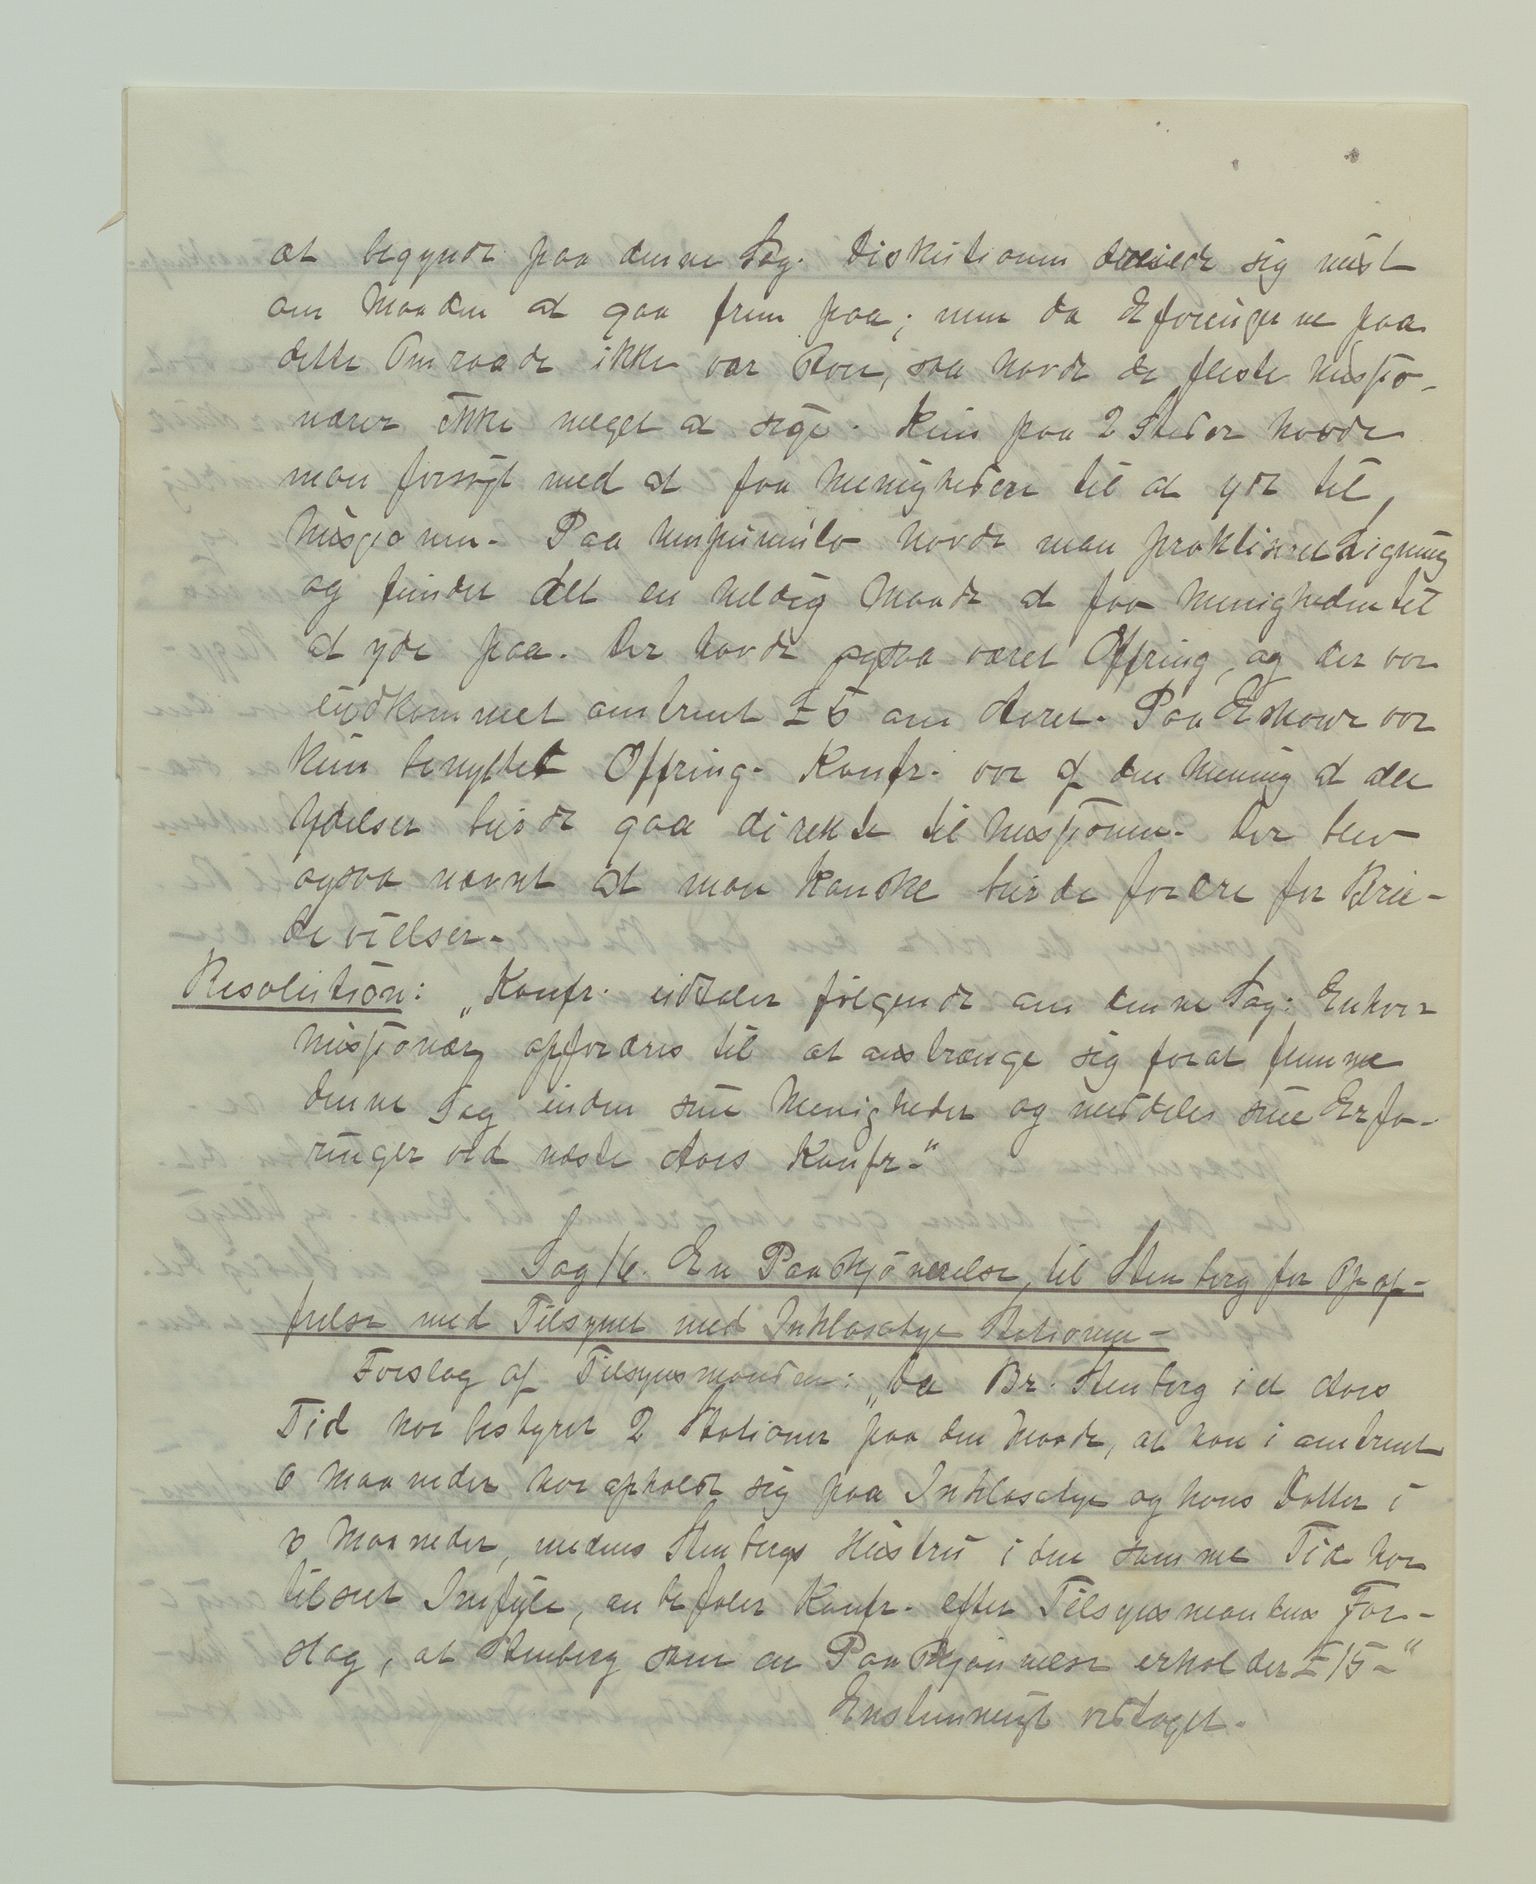 at begynde paa denne Sag. Diskutionen dreiede sig mest
om Maaden at gaa frem paa; men da Erfaringerne paa
dette Omraade ikke var stor, saa havde de fleste Missio-
nærer ikke meget at sige. Kun paa 2 Steder havde
man forsøgt med at faa Menighederne til at yde til
Missionen. Paa Umpumulo havde man praktiseret Ligning
og fundet det en heldig Maade at faa Menigheden til
at yde paa. Der havde ogsaa været Offring, og der var
indkommet omtrent £5 om Aaret. Paa Eshowe var
kun benyttet Offring. Konfr. var af den Mening at alle
Ydelser burde gaa direkte til Missionen. Der blev
ogsaa nævnt at man kanske burde fordre for Bru-
devielser.
Resolution: "Konfr. udtaler følgende om denne Sag: Enhver
Missionær opfordres til at anstrænge sig forat fremme
denne Sag inden sine Menigheder og meddeler sine Erfa-
ringer ved næste Aars Konfr."
Sag 16. En Paaskjønnelse til Stenberg for Opof-
frelse med Tilsynet med Inhlasatye Stationen.
Forslag af Tilsynsmanden: "Da Br. Stenberg i et Aars
Tid har bestyret 2 Stationer paa den Maade, at han i omtrent
6 Maaneder har opholdt sig paa Inhlasatye og hans Datter i
Maaneder, medens Stenbergs Hustru i den samme Tid har
tilseet Imfule, anbefaler Konfr. efter Tilsynsmandens For-
slag, at Stenberg som en Paaskjønnelse erholder £15."
Enstemmigt vedtaget.